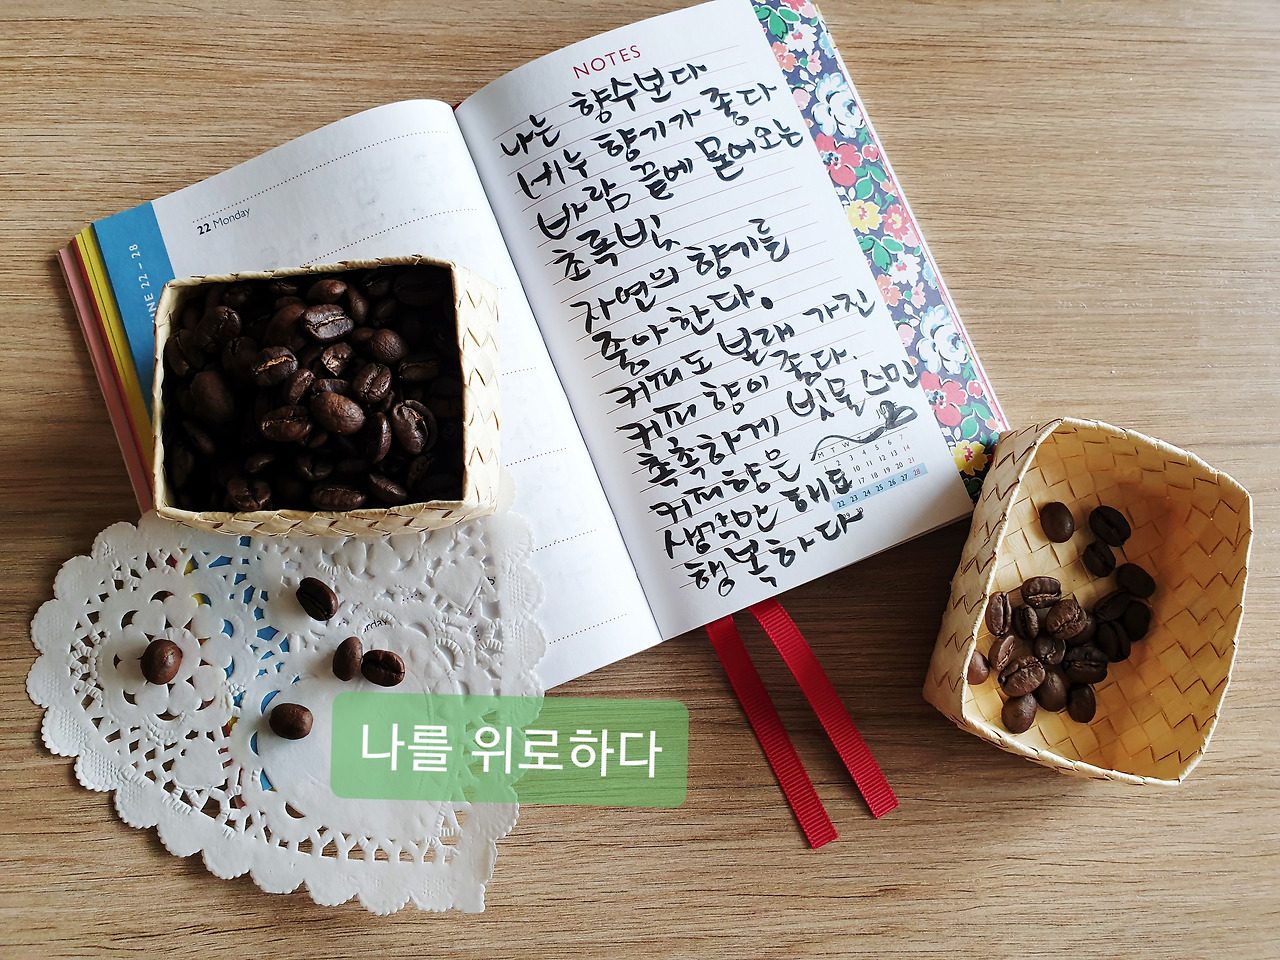 22 Monday
JUNE 22 - 28
NOTES
나는 향수보다
비누 향기가 좋다
바람 끝에 묻어오는
초록빛
자연의 향기를
좋아한다.
커피도 본래 가진
커피 향이 좋다.
촉촉하게 빗물 스민
커피향은
생각만 해도
행복하다
M T W
5 6 7
10 11 12 13 14
17 18 19 20 21
22 23 24 25 26 27 28
나를 위로하다